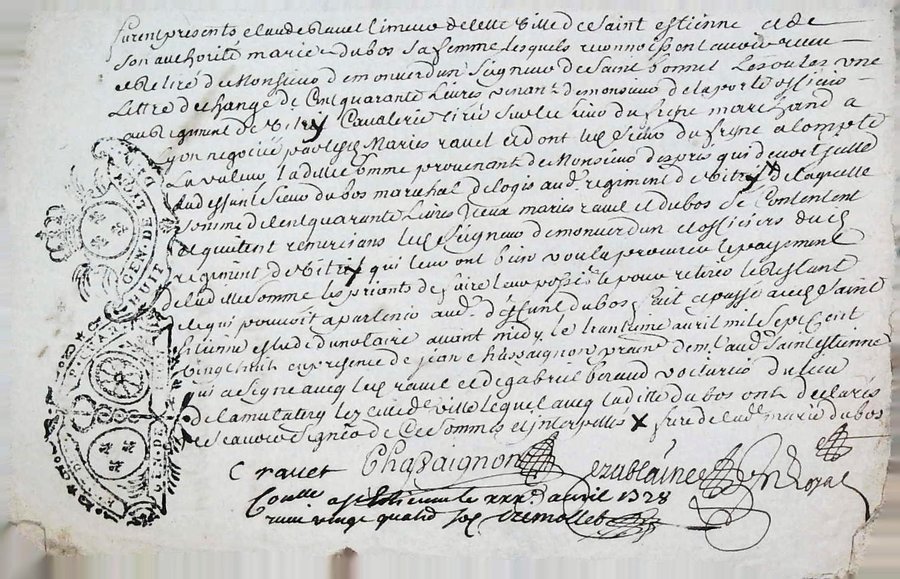 furent presents Claude Ravel limeur de cette ville de Saint Estienne et de
son authorité marie Dubos sa femme lesquels reconnoissent avoir receu
et retiré de Monsieur demonverdun Seigneur de Saint bonnet Les oules une
Lettre dechange de Cent quarante Livres venant de monsieur de laporte officier
au Regiment de vitry Cavalerie tirée sur le sieur du freyne marchand a
Lyon negociée par lesd Maries ravel et dont led Sieur du freyne a Compté
La valeur Laditte somme provenant de Monsieur després qui devoit
aud deffunt Sieur dubos marechal de logis aud regiment de vitry de laquelle
somme de Cent quarante Livres lesd maries ravel et dubos se Contentent
et quittent remercians led Seigneur demonverdun et officiers dud
regiment de vitry qui leur ont bien voulu procurer le payement
de laditte somme les priants de faire leur possible pour retirer le Restant
de qui pouvoit apartenir aud deffunt dubos fait et passé aud Saint
Estienne estude du notaire avant midy le trantieme avril mil Sept Cent
vingt huit en presence de jean Chassaignon praticien de lad Saint Estienne
qui a Signé avec led ravel et de gabriel beraud voiturier du lieu
de lamulatery lez cette de ville lequel avec laditte dubos ont declarés
ne scavoir signer de Ce sommés et interpellés X
GEN.DE
HUIT
C ravel Chassaignon Royal
Conlle a St Estienne le xxx.e avril 1728
receu vingt quatre sols Tremollet